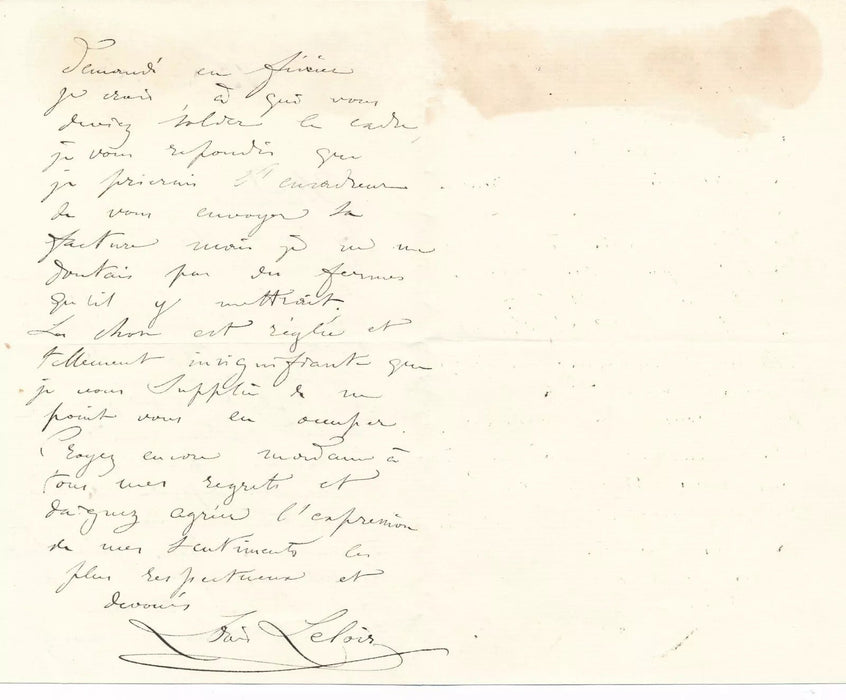 Demandé en février
je crois à qui vous
deviez solder le cadre,
je vous répondis que
je prierais l'encadreur
de vous envoyer sa
facture mais je ne me
doutais pas des termes
qu'il y mettrait.
La chose est réglée et
tellement insignifiante que
je vous supplie de ne
point vous en occuper.
Croyez encore madame à
tous mes regrets et
daignez agréer l'expression
de mes sentiments les
plus respectueux et
devoués
Louis Leloir